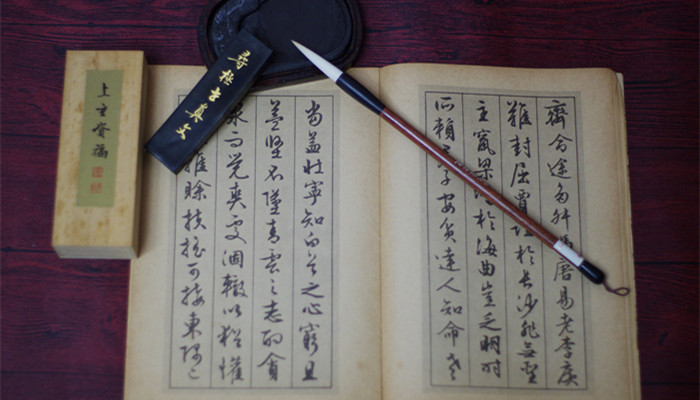 齊命途多舛馮唐易老李廣
難封屈賈誼於長沙非無聖
主竄梁鴻於海曲豈乏明時
所賴子安貧達人知命老
當益壯寧知白首之心窮且
益堅不墜青雲之志酌貪
泉而覺爽處涸轍以猶懽
雖賒扶搖可接東隅已